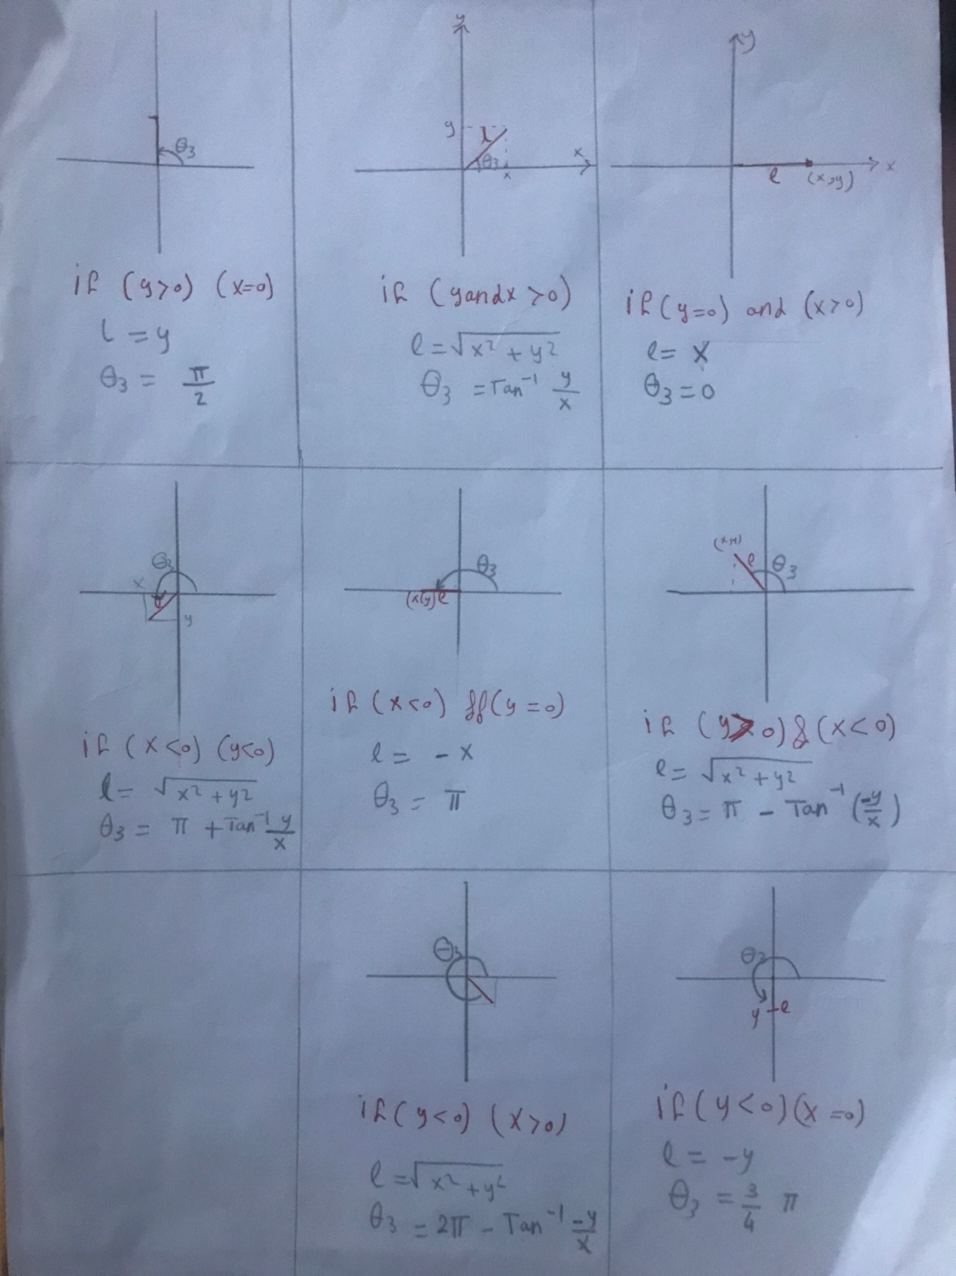 θ3
if (y>0) (x=0)
l = y
θ3 = π/2
y
y
l
θ3
x
x
if (y and x >0)
l = √x² + y²
θ3 = Tan⁻¹ y/x
y
x
l
(x,y)
if (y=0) and (x>0)
l = x
θ3 = 0
θ3
x
y
if (x<0) (y<0)
l = √x² + y²
θ3 = π + Tan⁻¹ y/x
θ3
(x,y) l
if (x<0) && (y=0)
l = -x
θ3 = π
l
θ3
if (y>0) & (x<0)
l = √x² + y²
θ3 = π - Tan⁻¹ (-y/x)
θ3
if (y<0) (x>0)
l = √x² + y²
θ3 = 2π - Tan⁻¹ -y/x
θ3
y
l
if (y<0) (x=0)
l = -y
θ3 = 3/4 π